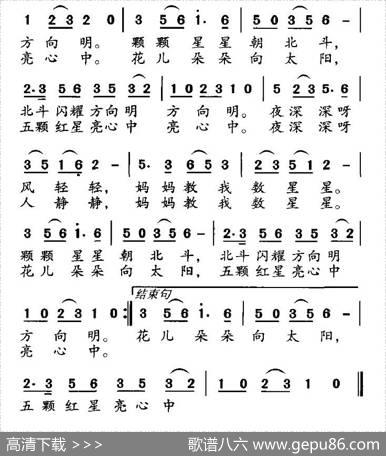 1 2 3 2 0 | 3 5 6 i· 6 | 5 0 3 5 6 - |
方向明。 颗颗星星朝北斗，
亮心中。 花儿朵朵向太阳，
2·3 5 6 3 5 3 2 | 1 0 2 3 1 0 | 5 2 3 5·6 |
北斗闪耀方向明 方向明。 夜深深呀
五颗红星亮心中 亮心中。 夜深深呀
3 5 1 6 2 - | 5· 3 6 5 3 | 2 3 5 1 2 - |
风轻轻， 妈妈教我数星星。
人静静， 妈妈教我数星星。
3 5 6 i· 6 | 5 0 3 5 6 - | 2·3 5 6 3 5 3 2 |
颗颗星星朝北斗， 北斗闪耀方向明
花儿朵朵向太阳， 五颗红星亮心中
结束句
1 0 2 3 1 0 :‖ 3 5 6 i· 6 | 5 0 3 5 6 - |
方向明。 花儿朵朵向太阳，
亮心中。
2·3 5 6 3 5 3 2 | 1 0 2 3 1 0 ‖
五颗红星亮心中
高清下载 >>> 歌谱八六 www.gepu86.com